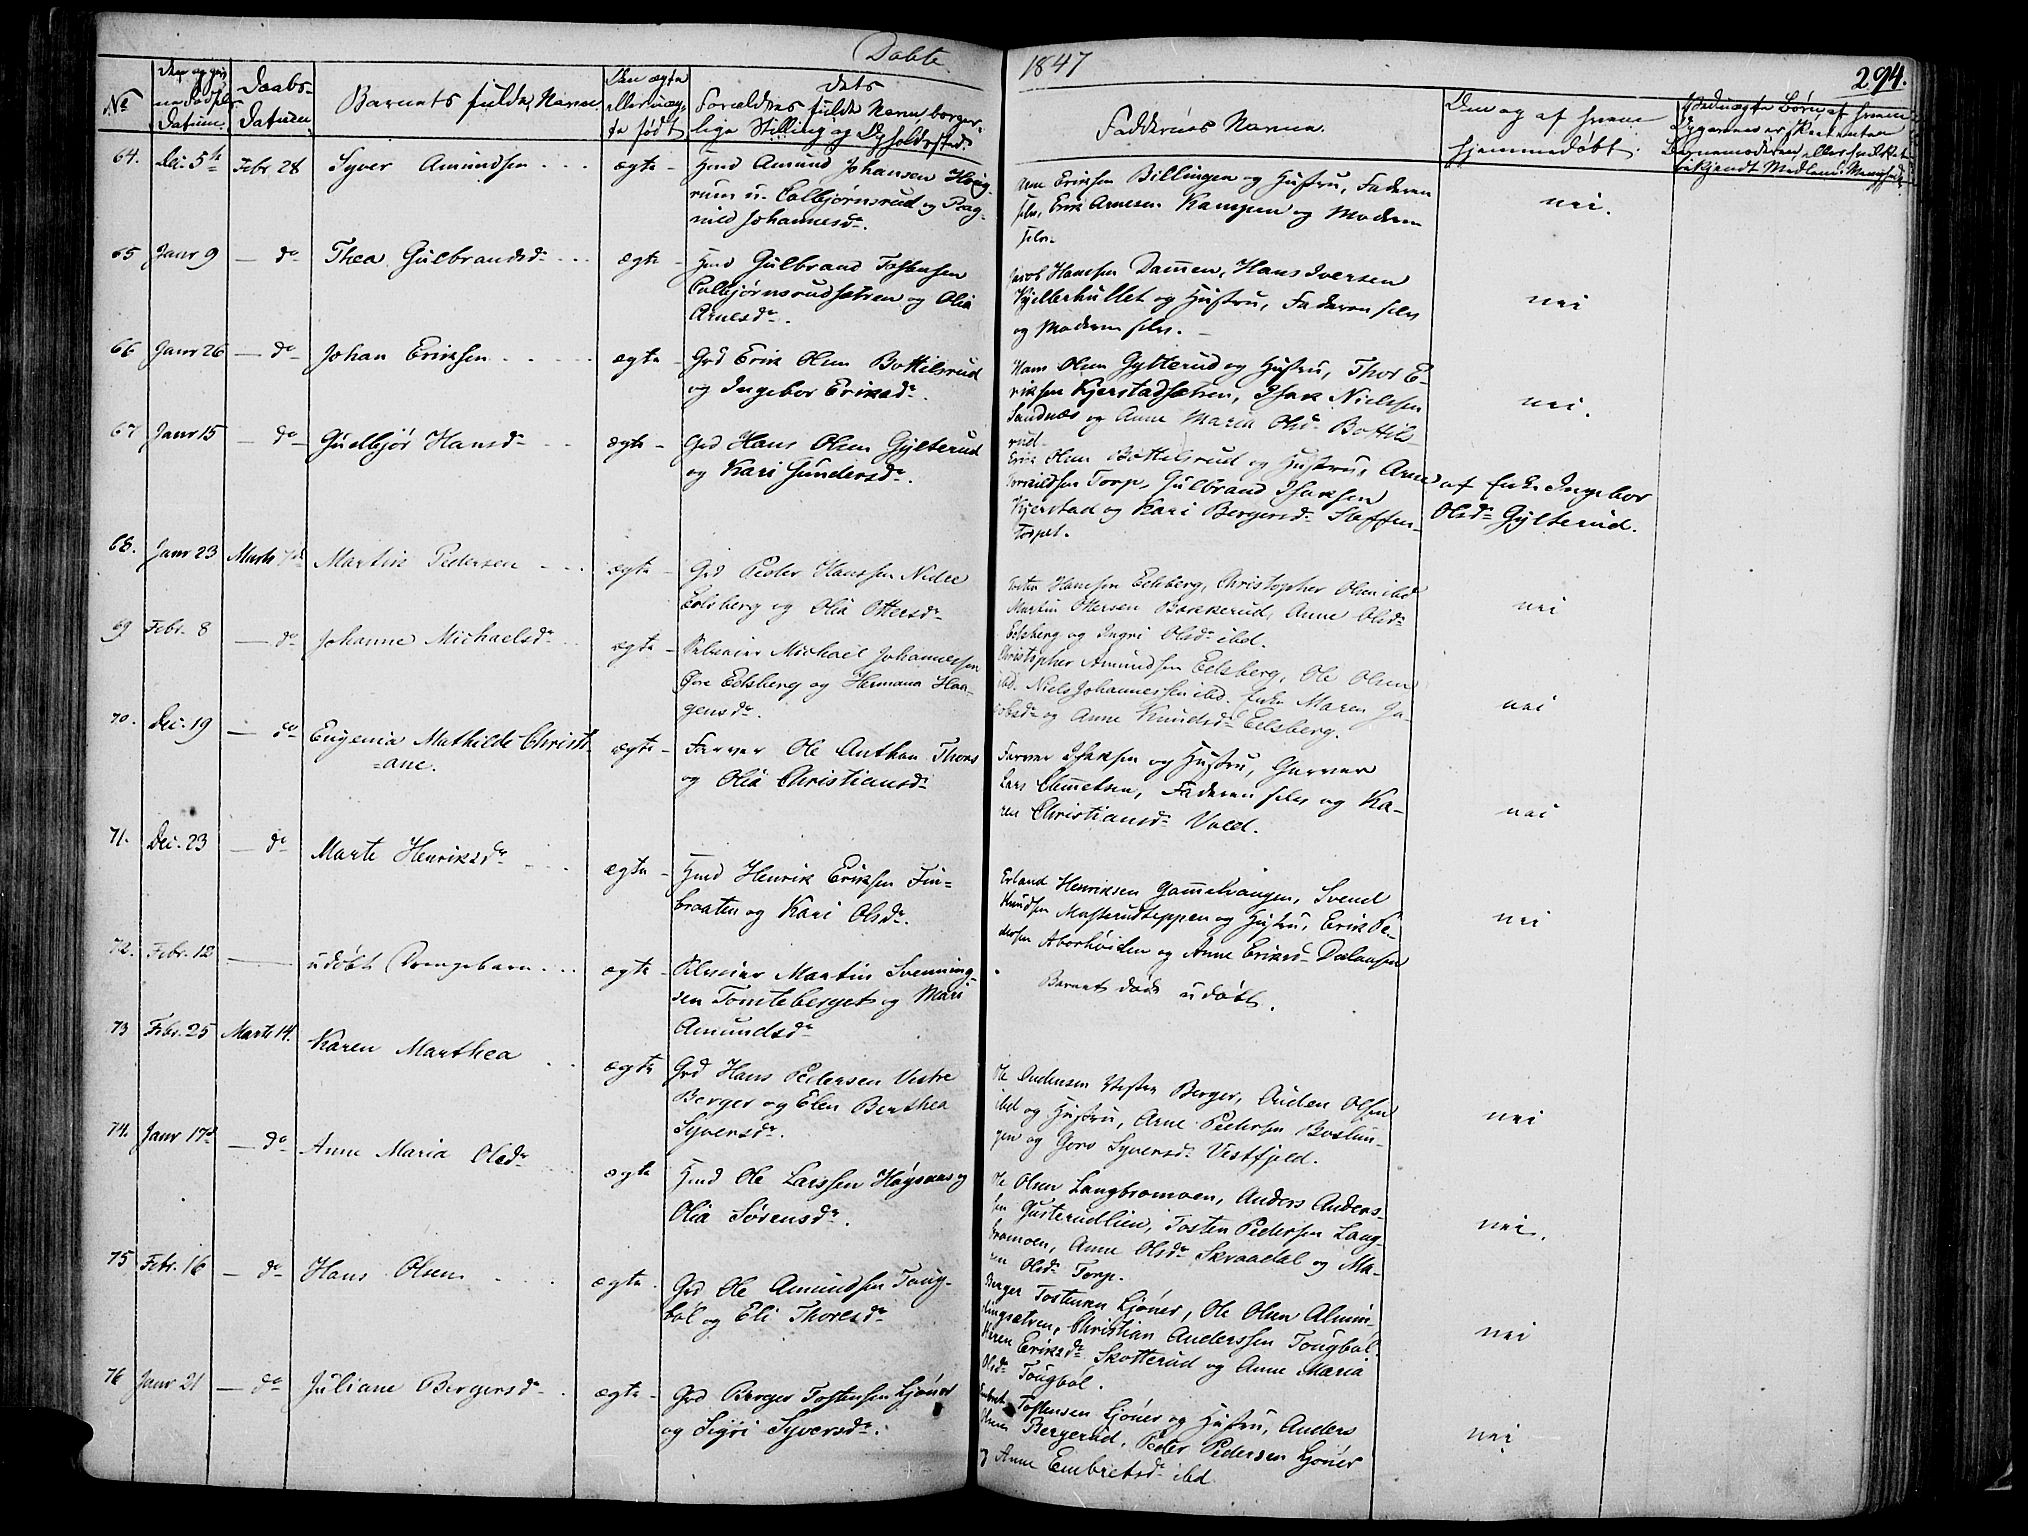 Døbte
1847
294.
No
Daabs-
Datum.
Barnets fulde Navn
Den ægte
eller uæg-
te født
dets
Forældres fulde Navn, borger-
lige Stilling og Opholdssted
Faddernes Navne.
Om og af hvem
hjemmedøbt.
64.
Dec. 5te
Febr 28
Syver Amundsen
ægte
Hmd Amund Johansen
rum u. Colbjørnsrud og Rag-
nild Johannesdr.
Arne Eriksen Billingen og Hustru, Faderen
selv, Erik Arnesen Kampen og Moderen
selv.
nei.
65
Janr 9
— do
Thea Gulbrandsdr
ægte
Hmd Gulbrand Tostensen
Colbjørnsrudsetren og Olia
Arnesdr.
Jacob Hansen Dammen, Hans Iversen
Kjellerhullet og Hustru, Faderen selv
og Moderen selv.
nei
66
Janr 26
— do
Johan Eriksen
ægte
Grd Erik Olsen Bottilsrud
og Ingebor Eriksdr.
Hans Olsen Gylterud og Hustru, Thor E-
riksen Kjerstadsetren, Isak Nielsen
Sandnæs og Anne Maria Olsdr Bottils
rud.
nei.
67
Janr 15
— do
Gudbjør Hansdr
ægte
Grd Hans Olsen Gylterud
og Kari Gundersdr.
Erik Olsen Bottilsrud og Hustru, Arne
Torp, Gulbrand Isaksen
Kjerstad og Kari Bergersdr Steffen-
Torpet.
af Enke Ingebor
Olsdr Gylterud.
68.
Janr 23
Marts 7de
Martin Pedersen
ægte
Grd Peder Hanssen Nidre
Eelsberg og Olia Ottersdr
Tosten Hanssen Eelsberg, Christopher Olsen ibd
Martin Ottersen Bakkerud, Anne Olsdr
Eelsberg og Ingri Olsdr ibd.
nei
69
Febr. 8
— do
Johanne Michaelsdr
ægte
Michael Johannessen
Øvre Eelsberg og Hermana Haa-
gensdr.
Christopher Amundsen Eelsberg, Ole Olsen
ibd. Niels Johannessen ibd. Enke Maren Ja-
cobsdr og Anne Knudsdr Eelsberg.
nei
70.
Dec. 19
— do
Eugenia Mathilde Christi-
=ane.
ægte
Farver Ole Anthon Thorns
og Olia Christiansdr
Farver Isaksen og Hustru, Garver
Lars Clemetsen, Faderen selv og Ka-
ren Christiansdr Vold.
nei
71.
Dec. 23
— do
Marte Henriksdr
ægte
Hmd Henrik Eriksen Fin-
braaten og Kari Olsdr.
Erland Henriksen Gammelvangen, Svend
Knudsen og Hustru, Erik Pe-
dersen Aborhviden og Anne Eriksdr
nei
72.
Febr. 12
—
udøbt Drengebarn
ægte
Martin Svenning-
sen Tomteberget og Mari
Amundsdr
Barnet døde udøbt.
73
Febr. 25
Marts 14.
Karen Marthea
ægte
Grd Hans Pedersen Vestre
Berger og Elen Berthea
Syversdr.
Ole Audensen Vestre Berger, Auden Olsen
ibd og Hustru, Arne Pedersen
gen og Goro Syversdr Vestfjeld.
nei
74.
Janr 17de
— do
Anne Maria Olsdr
ægte
Hmd Ole Larssen Høysnes og
Olia Sørensdr.
Ole Olsen Langbromoen, Anders Anders-
sen Gusterudlien, Tosten Pedersen Lang-
bromoen, Anne Olsdr Skraadal og Ma-
ren Olsdr Torp.
nei.
75
Febr. 16
— do
Hans Olsen
ægte
Grd Ole Amundsen Toug-
bøl og Eli Thoresdr
Berger Tostensen Ljøner, Ole Olsen Almin-
dingsetren, Christian Anderssen Tougbøl.
Karen Eriksdr Skotterud og Anne Maria
Olsdr Tougbøl.
nei
76
Janr 21
— do
Juliane Bergersdr
ægte
Grd Berger Tostensen Ljøner
og Sigri Syversdr.
Embret Tostensen Ljøner og Hustru, Anders
Olsen Bergerud, Peder Pedersen Ljøner
og Anne Embretsdr ibd.
nei